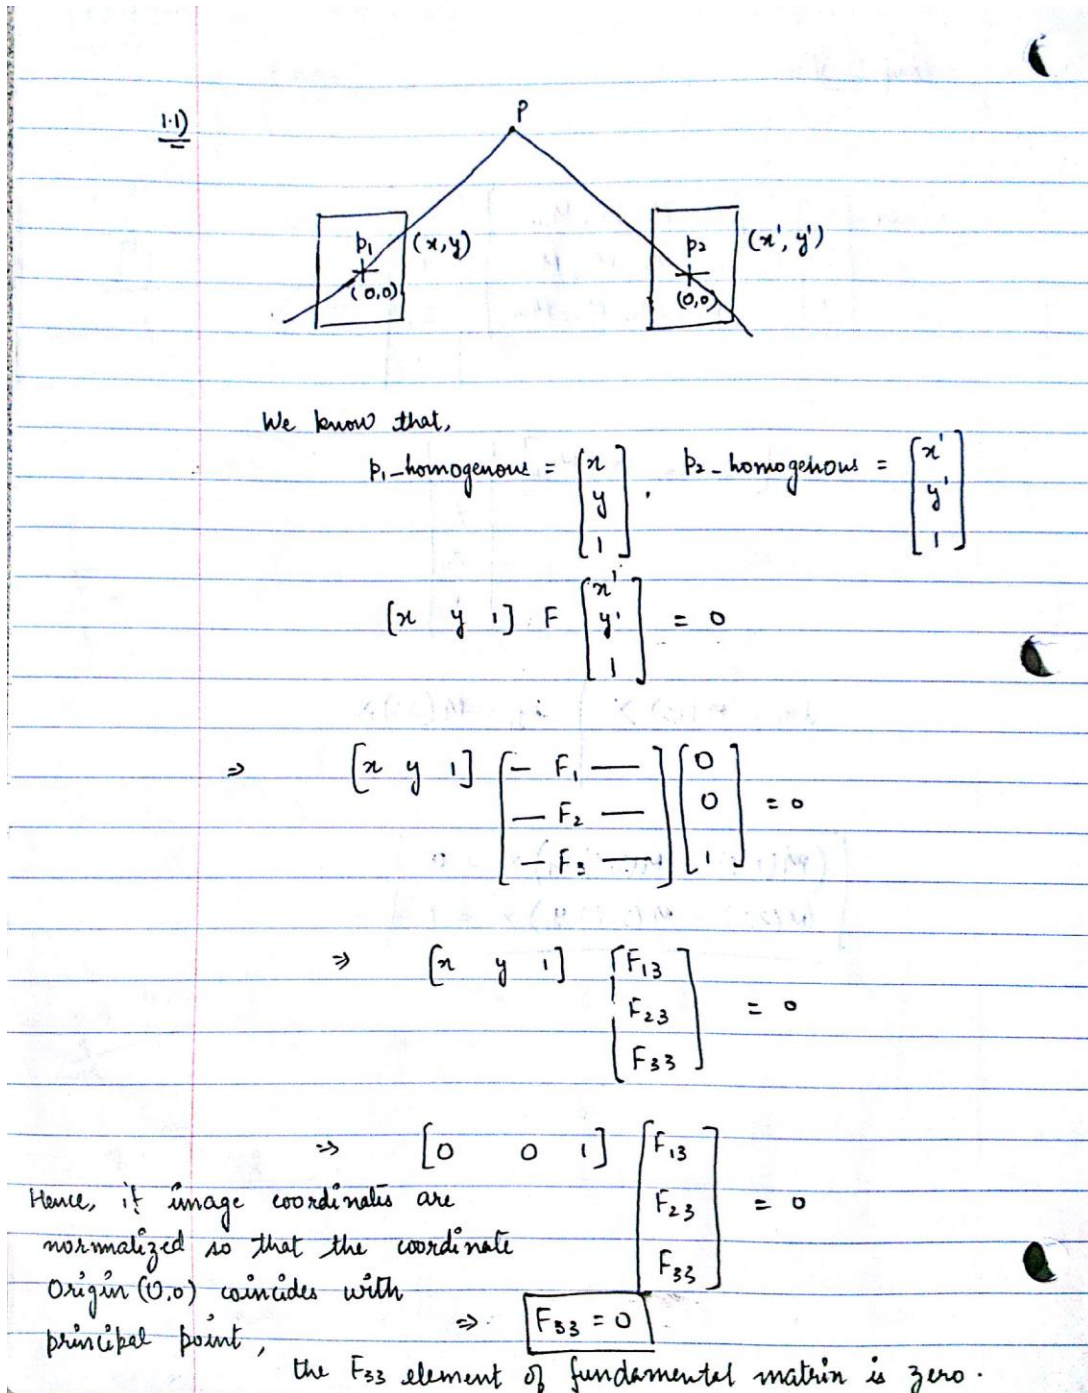 1.1)
P
p₁ (x, y) p₂ (x', y')
(0,0) (0,0)
We know that,
p₁_homogenous = [x y 1] , p₂_homogenous = [x' y' 1]
[x y 1] F [x' y' 1] = 0
⇒ [x y 1] [— F₁ — — F₂ — — F₃ —] [0 0 1] = 0
⇒ [x y 1] [F₁₃ F₂₃ F₃₃] = 0
⇒ [0 0 1] [F₁₃ F₂₃ F₃₃] = 0
Hence, if image coordinates are
normalized so that the coordinate
Origin (0,0) coincides with
principal point,
⇒ F₃₃ = 0
the F₃₃ element of fundamental matrix is zero.